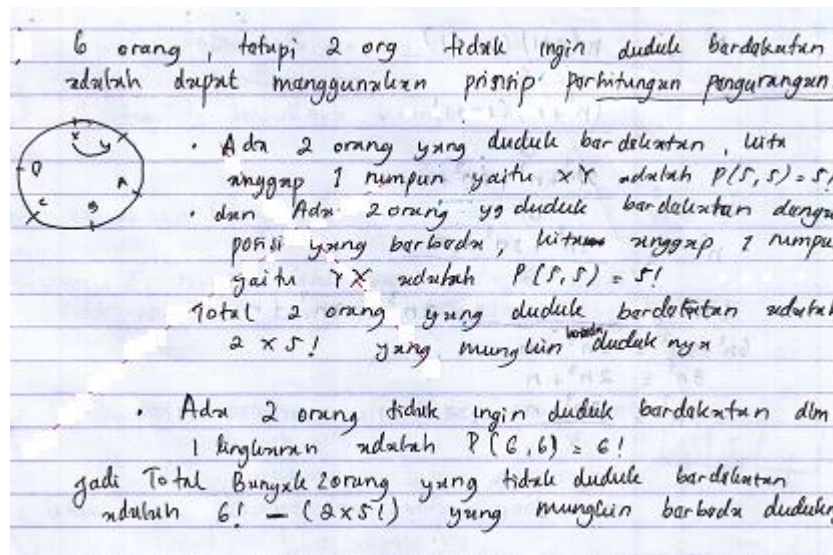 6 orang, tetapi 2 org tidak ingin duduk berdekatan
adalah dapat menggunakan prinsip perhitungan pengurangan
x y
D A
C B
. Ada 2 orang yang duduk berdekatan, kita
anggap 1 rumpun yaitu XY adalah P(5,5) = 5!
. dan Ada 2 orang yg duduk berdekatan denga
posisi yang berbeda, kita anggap 1 rumpu
yaitu YX adalah P(5,5) = 5!
Total 2 orang yang duduk berdekatan adalah
2 x 5! yang mungkin berbeda duduknya
. Ada 2 orang tidak ingin duduk berdekatan dlm
1 lingkaran adalah P(6,6) = 6!
Jadi Total Banyak 2 orang yang tidak duduk berdekatan
adalah 6! - (2x5!) yang mungkin berbeda duduk